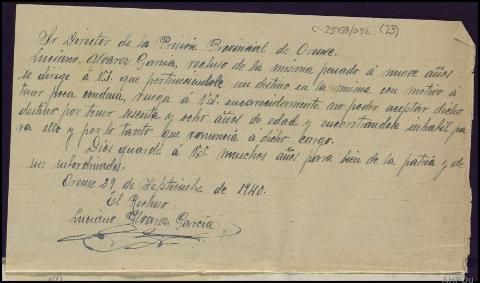 C-25758/032 (23)
Sr Director de la Prisión Provincial de Orense.
Luciano Alvarez Garcia, recluso de la misma penado á nueve años
se dirige á V.S. que perteneciendole un destino en la misma con motivo á
tener poca condena, ruega á V.S. encarecidamente no poder aceptar dicho
destino por tener sesenta y ocho años de edad y encontrandole inhabil pa
ra ello y por lo tanto que renuncia á dicho cargo.
Dios guarde á V.S. muchos años para bien de la patria y de
sus subordinados.
Orense 29 de Septiembre de 1940.
El Recluso
Luciano Alvarez Garcia